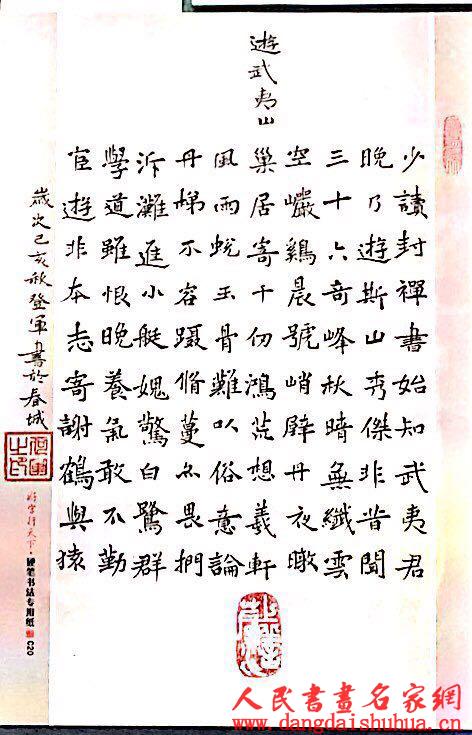 遊武夷山
少讀封禪書始知武夷君
晚乃遊斯山秀傑非昔聞
三十六奇峰秋晴無纖雲
空巖鷄晨號峭壁丹夜暾
巢居寄千仞鴻荒想羲軒
風雨蛻玉骨難以俗意論
丹梯不容躡脩蔓亦畏捫
泝灘進小艇愧驚白鷺群
學道雖恨晚養氣敢不勤
宦遊非本志寄謝鶴與猿
歲次己亥秋登軍書於春城
字行天下·硬笔书法专用纸 C20
人民書畫名家網
www.dangdaishuhua.cn